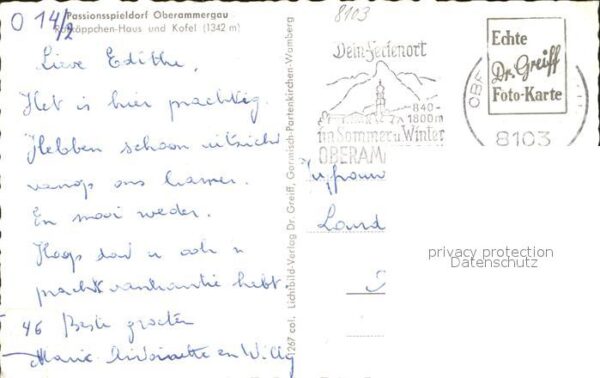 O 14/2
8103
Passionsspieldorf Oberammergau
Rotkäppchen-Haus und Kofel (1342 m)
Lieve Edithe,
Het is hier prachtig.
Hebben schoon uitzicht
vanop ons kamer.
En mooi weder.
Hoop dat u ook n
pracht vankantie hebt
46 Beste groeten
Marie Antoinette en Willy
1267 col. Lichtbild-Verlag Dr. Greiff, Garmisch-Partenkirchen-Wamberg
Dein Ferienort
840-
1800m
im Sommer u. Winter
OBERAM
Echte
Dr. Greiff
Foto-Karte
8103
Juffrouw
Land
privacy protection
Datenschutz